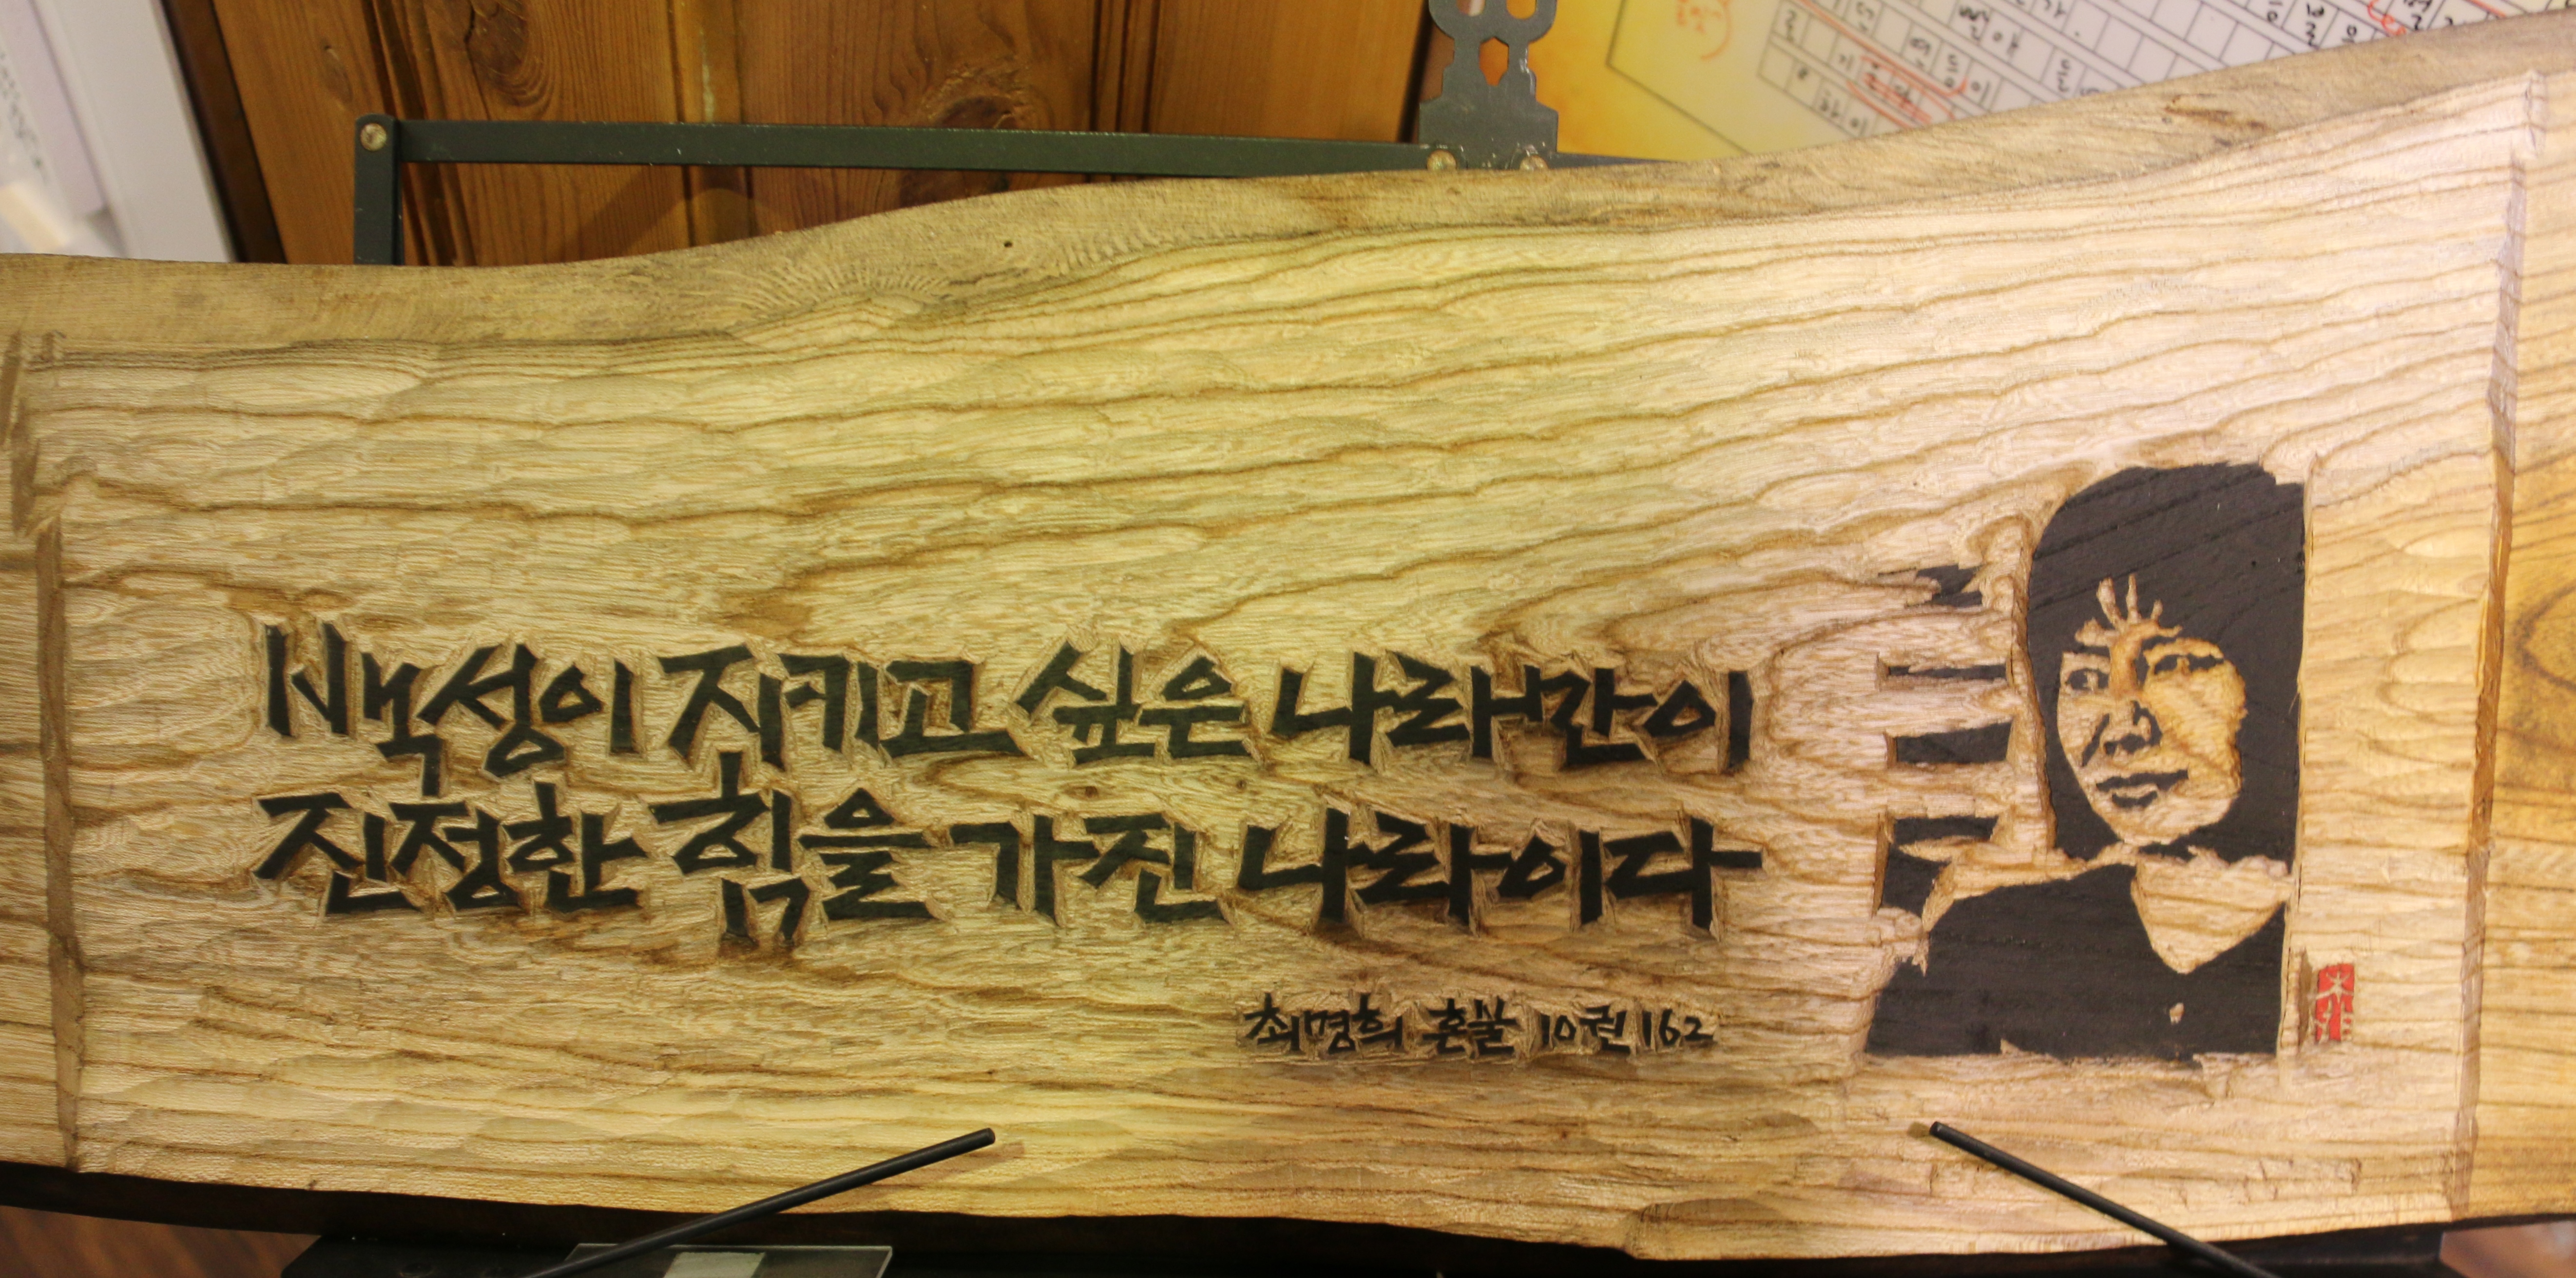 백성이 지키고 싶은 나라만이
진정한 힘을 가진 나라이다
최명희 혼불 10권 162